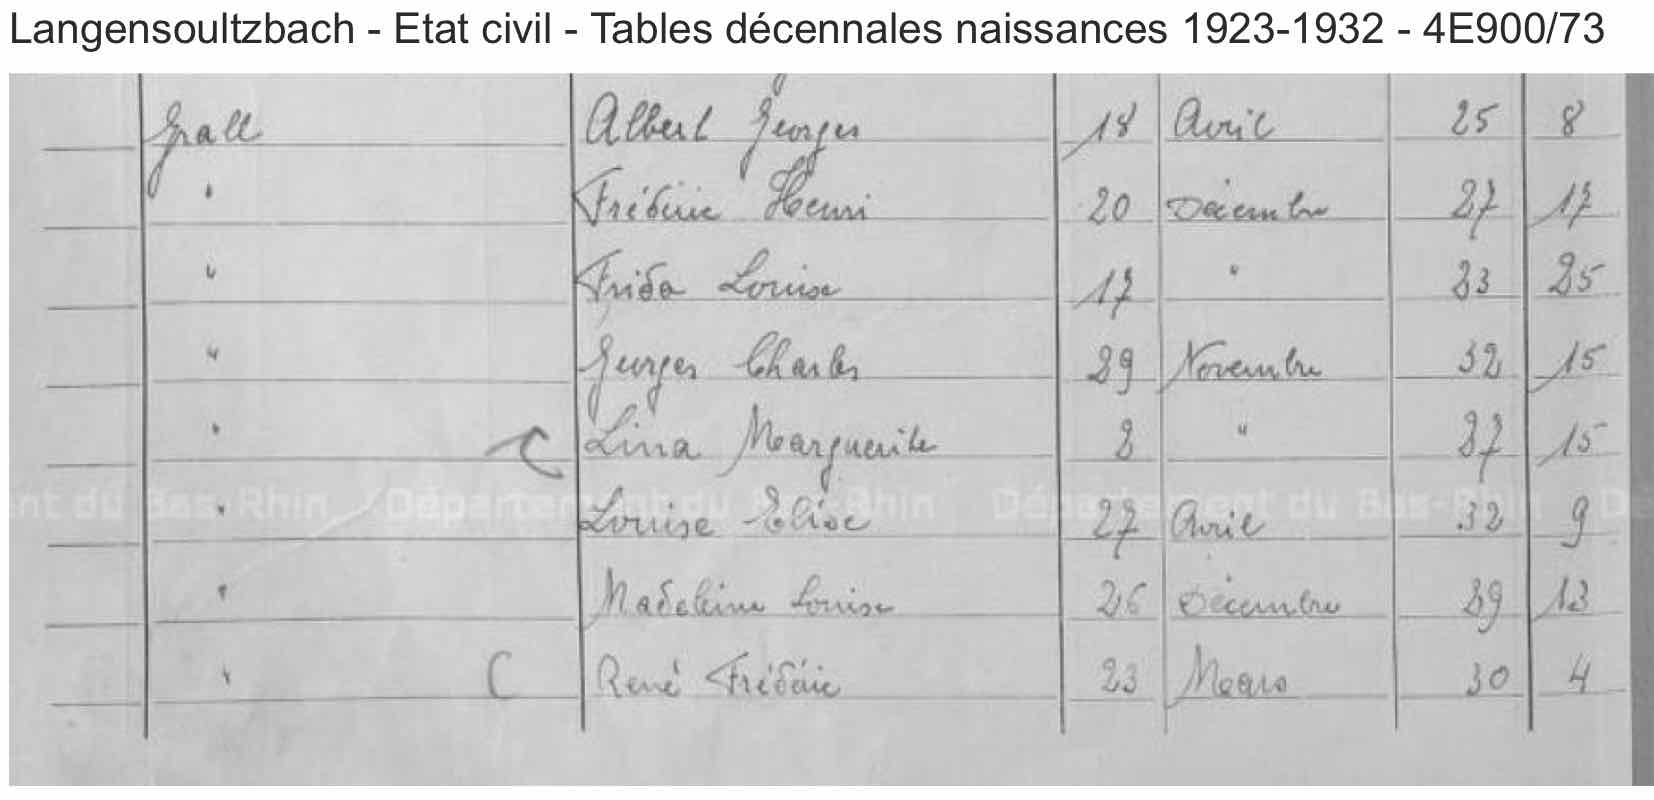 Langensoultzbach - Etat civil - Tables décennales naissances 1923-1932 - 4E900/73
Grall Albert Georges 18 Avril 25 8
" Frédéric Henri 20 Décembre 27 17
" Frida Louise 17 " 23 25
" Georges Charles 29 Novembre 32 15
" Lina Marguerite 2 " 27 15
nt du Bas-Rhin Département du Bas-Rhin Département du Bas-Rhin Dé
" Louise Elise 27 Avril 32 9
" Madeleine Louise 26 Décembre 29 13
" C René Frédéric 23 Mars 30 4